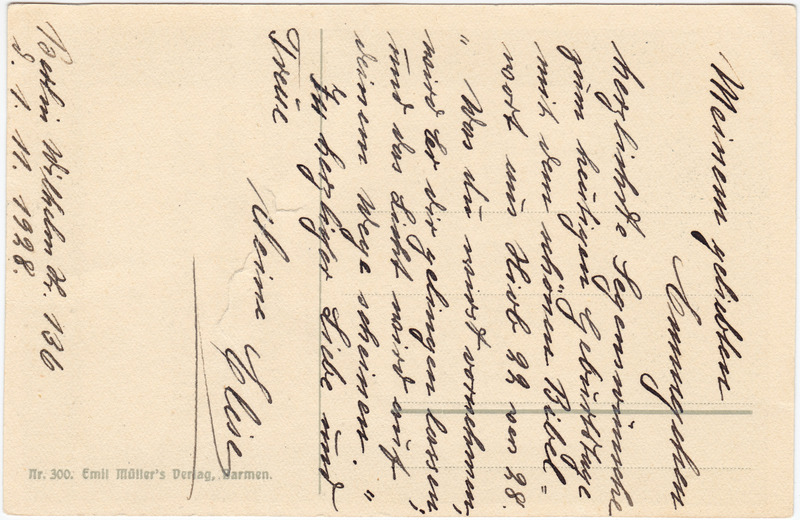 Meinem geliebten
Emmychen
herzlichste Segenswünsche
zum heutigen Geburtstage
mit dem schönen Bibel=
wort aus Hiob 22 vers 28.
"Was du wirst vornehmen,
wird Er dir gelingen lassen;
und das Licht wird auf
deinem Wege scheinen."
In herzlicher Liebe und
Treue
Deine Elise
Berlin Wilhelm St. 136
d. 1. 11. 1928.
Nr. 300. Emil Müller's Verlag, Barmen.